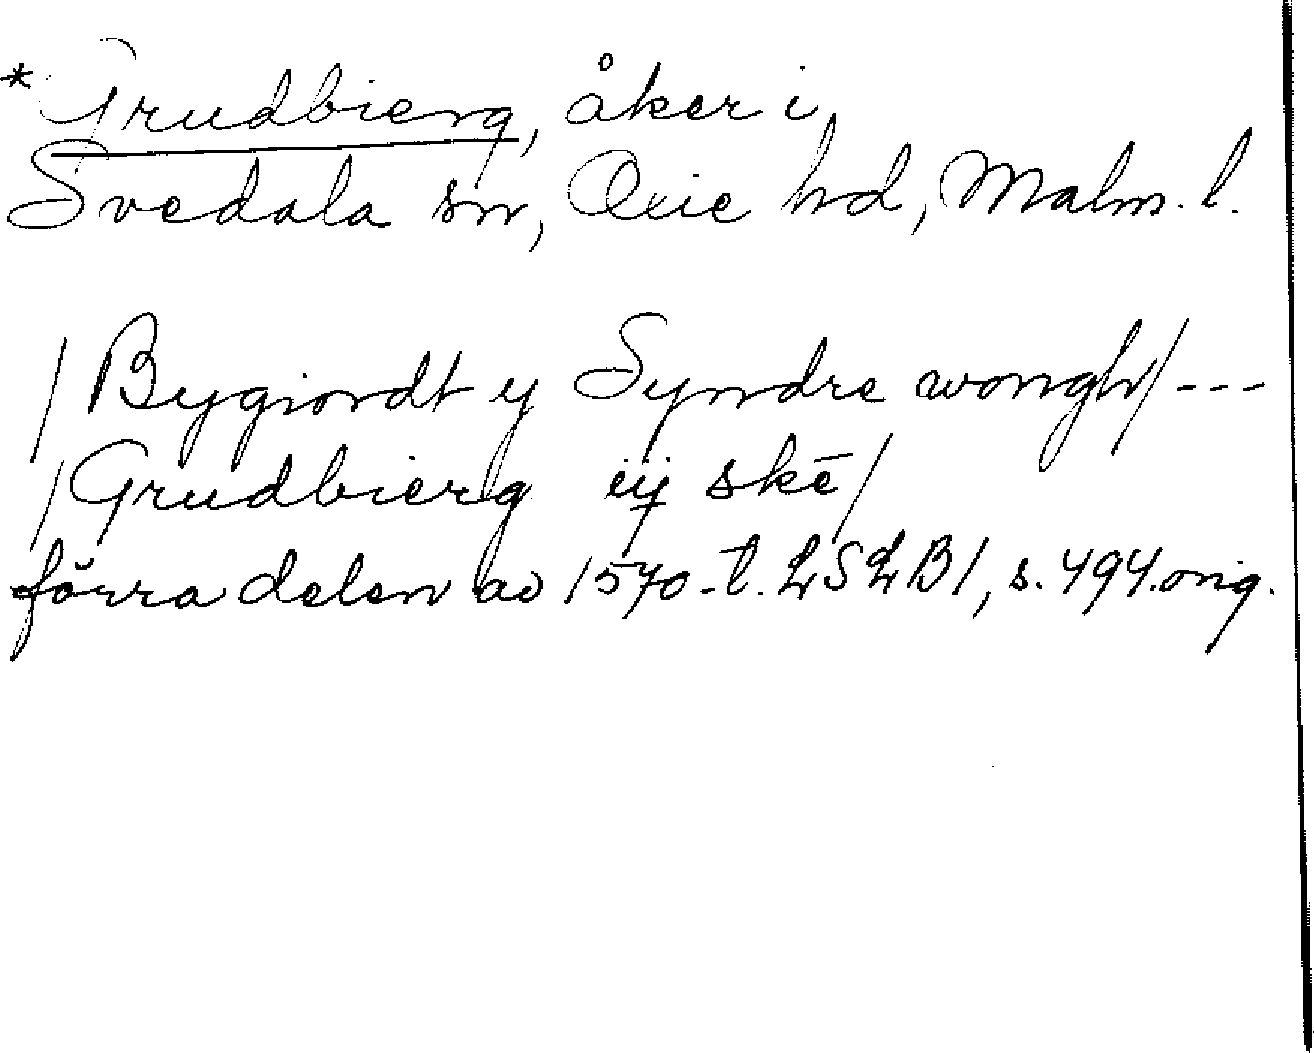 *Grudbierg, åker i
Svedala sn, Oxie hd, Malm. l.
/Bygiordt y Syndre wongh/ ---
/Grudbierg iij skē/
förra delen av 1570-t. LSLB1, s. 494.orig.